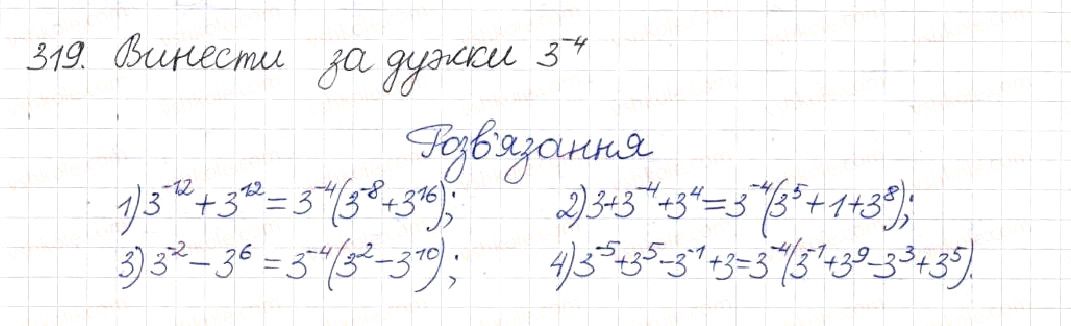 319. Винести за дужки 3⁻⁴
Розв'язання
1) 3⁻¹² + 3¹² = 3⁻⁴(3⁻⁸ + 3¹⁶); 2) 3 + 3⁻⁴ + 3⁴ = 3⁻⁴(3⁵ + 1 + 3⁸);
3) 3⁻² − 3⁶ = 3⁻⁴(3² − 3¹⁰); 4) 3⁻⁵ + 3⁵ − 3⁻¹ + 3 = 3⁻⁴(3⁻¹ + 3⁹ − 3³ + 3⁵).